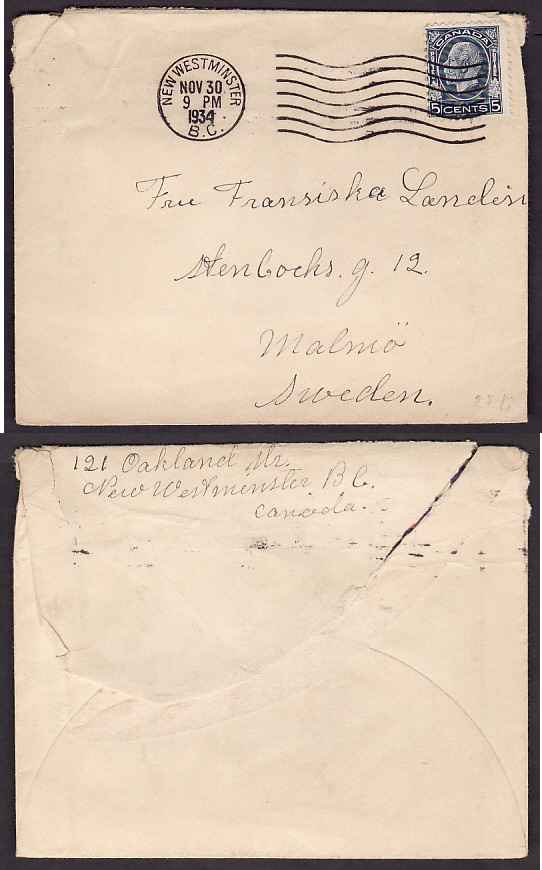 NEW WESTMINSTER
NOV 30
9 PM
1934
B.C.
CANADA
5 CENTS 5
Fru Fransiska Landin
Stenbocks. g. 12.
Malmö
Sweden.
121 Oakland Str.
New Westminster B C.
Canada.